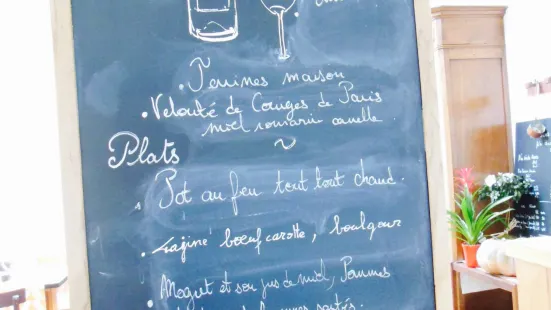 . Terrines maison
. Velouté de Courges de Paris
miel romarin canelle
~
Plats
. Pot au feu tout tout chaud.
. Tajine bœuf carotte, boulgour
. Magret et son jus de miel, Pommes
sautés.